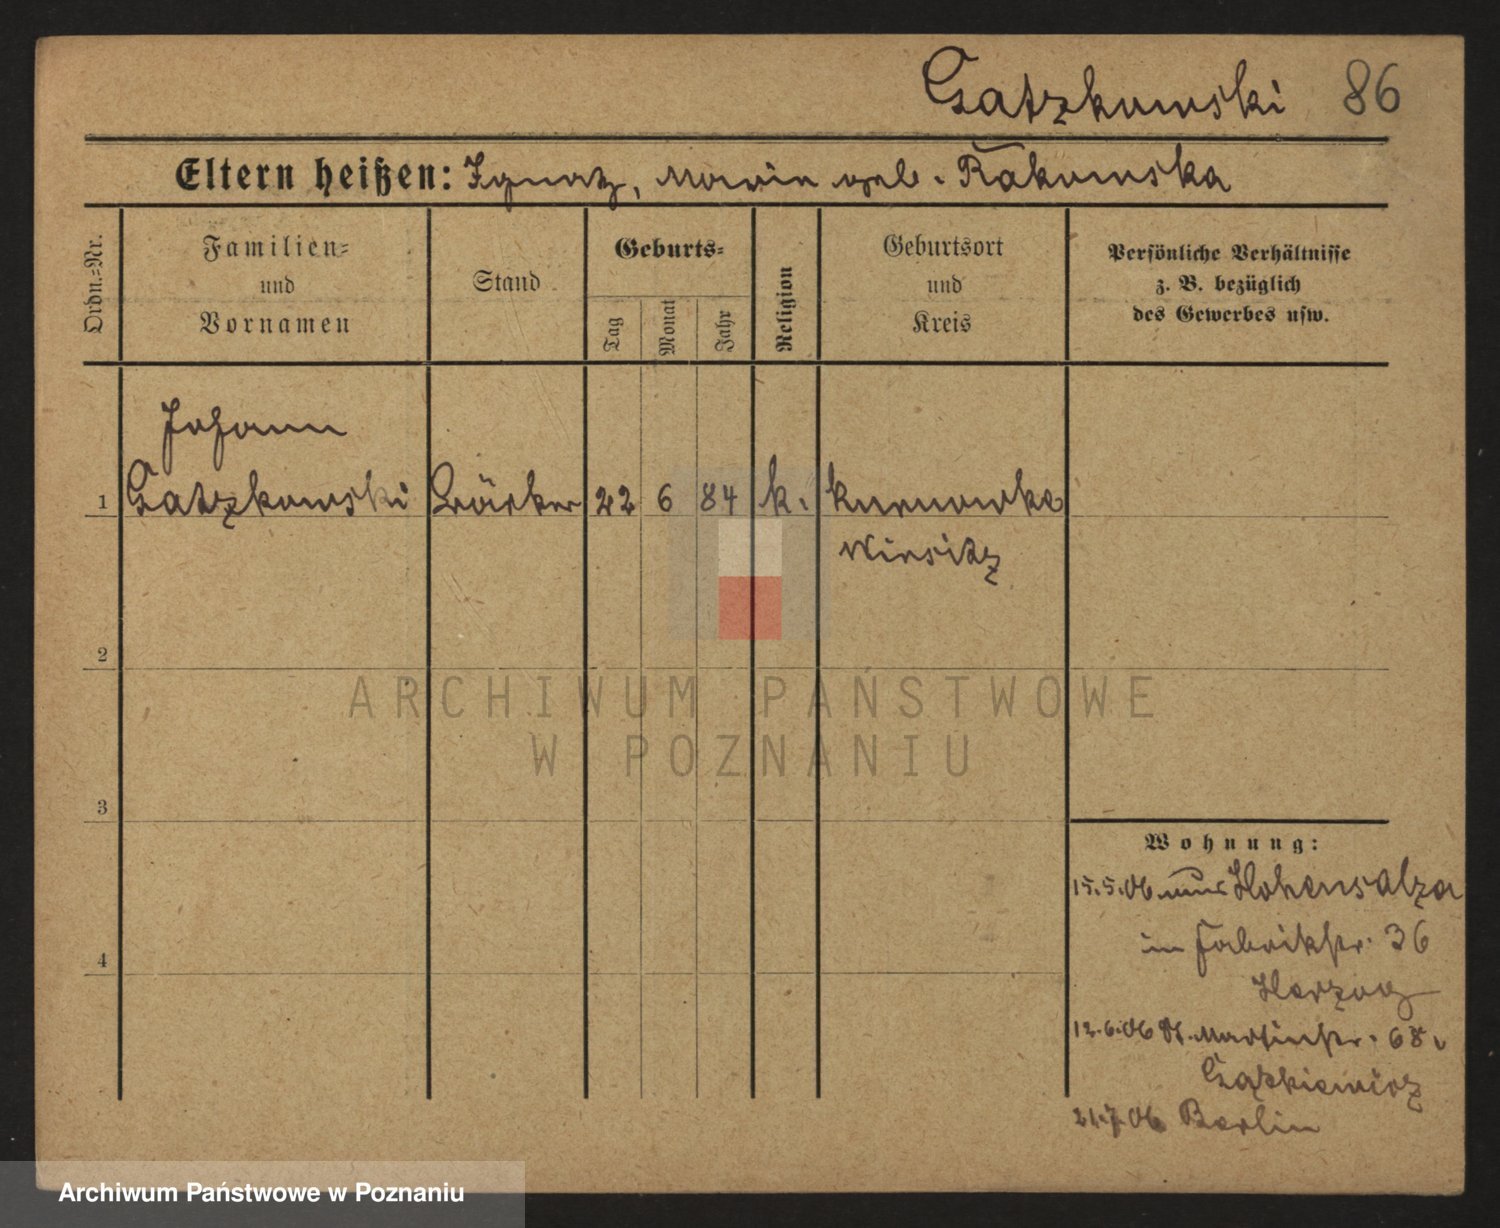 Gatzkowski 86
Eltern heißen: Ignatz, Maria geb. Rakowska
Ordn.-Nr.
Familien-
und
Vornamen
Stand
Geburts-
Tag
Monat
Jahr
Religion
Geburtsort
und
Kreis
Persönliche Verhältnisse
z. B. bezüglich
des Gewerbes usw.
Johann
1 Gatzkowski Bäcker 22 6 84 k.
Wirsitz
2
3
4
ARCHIWUM PAŃSTWOWE
W POZNANIU
Wohnung:
15.5.06 aus Hohensalza
in Fabrikstr. 36
Herzog
12.6.06 St. Martinstr. 68
21.7.06 Berlin
Archiwum Państwowe w Poznaniu